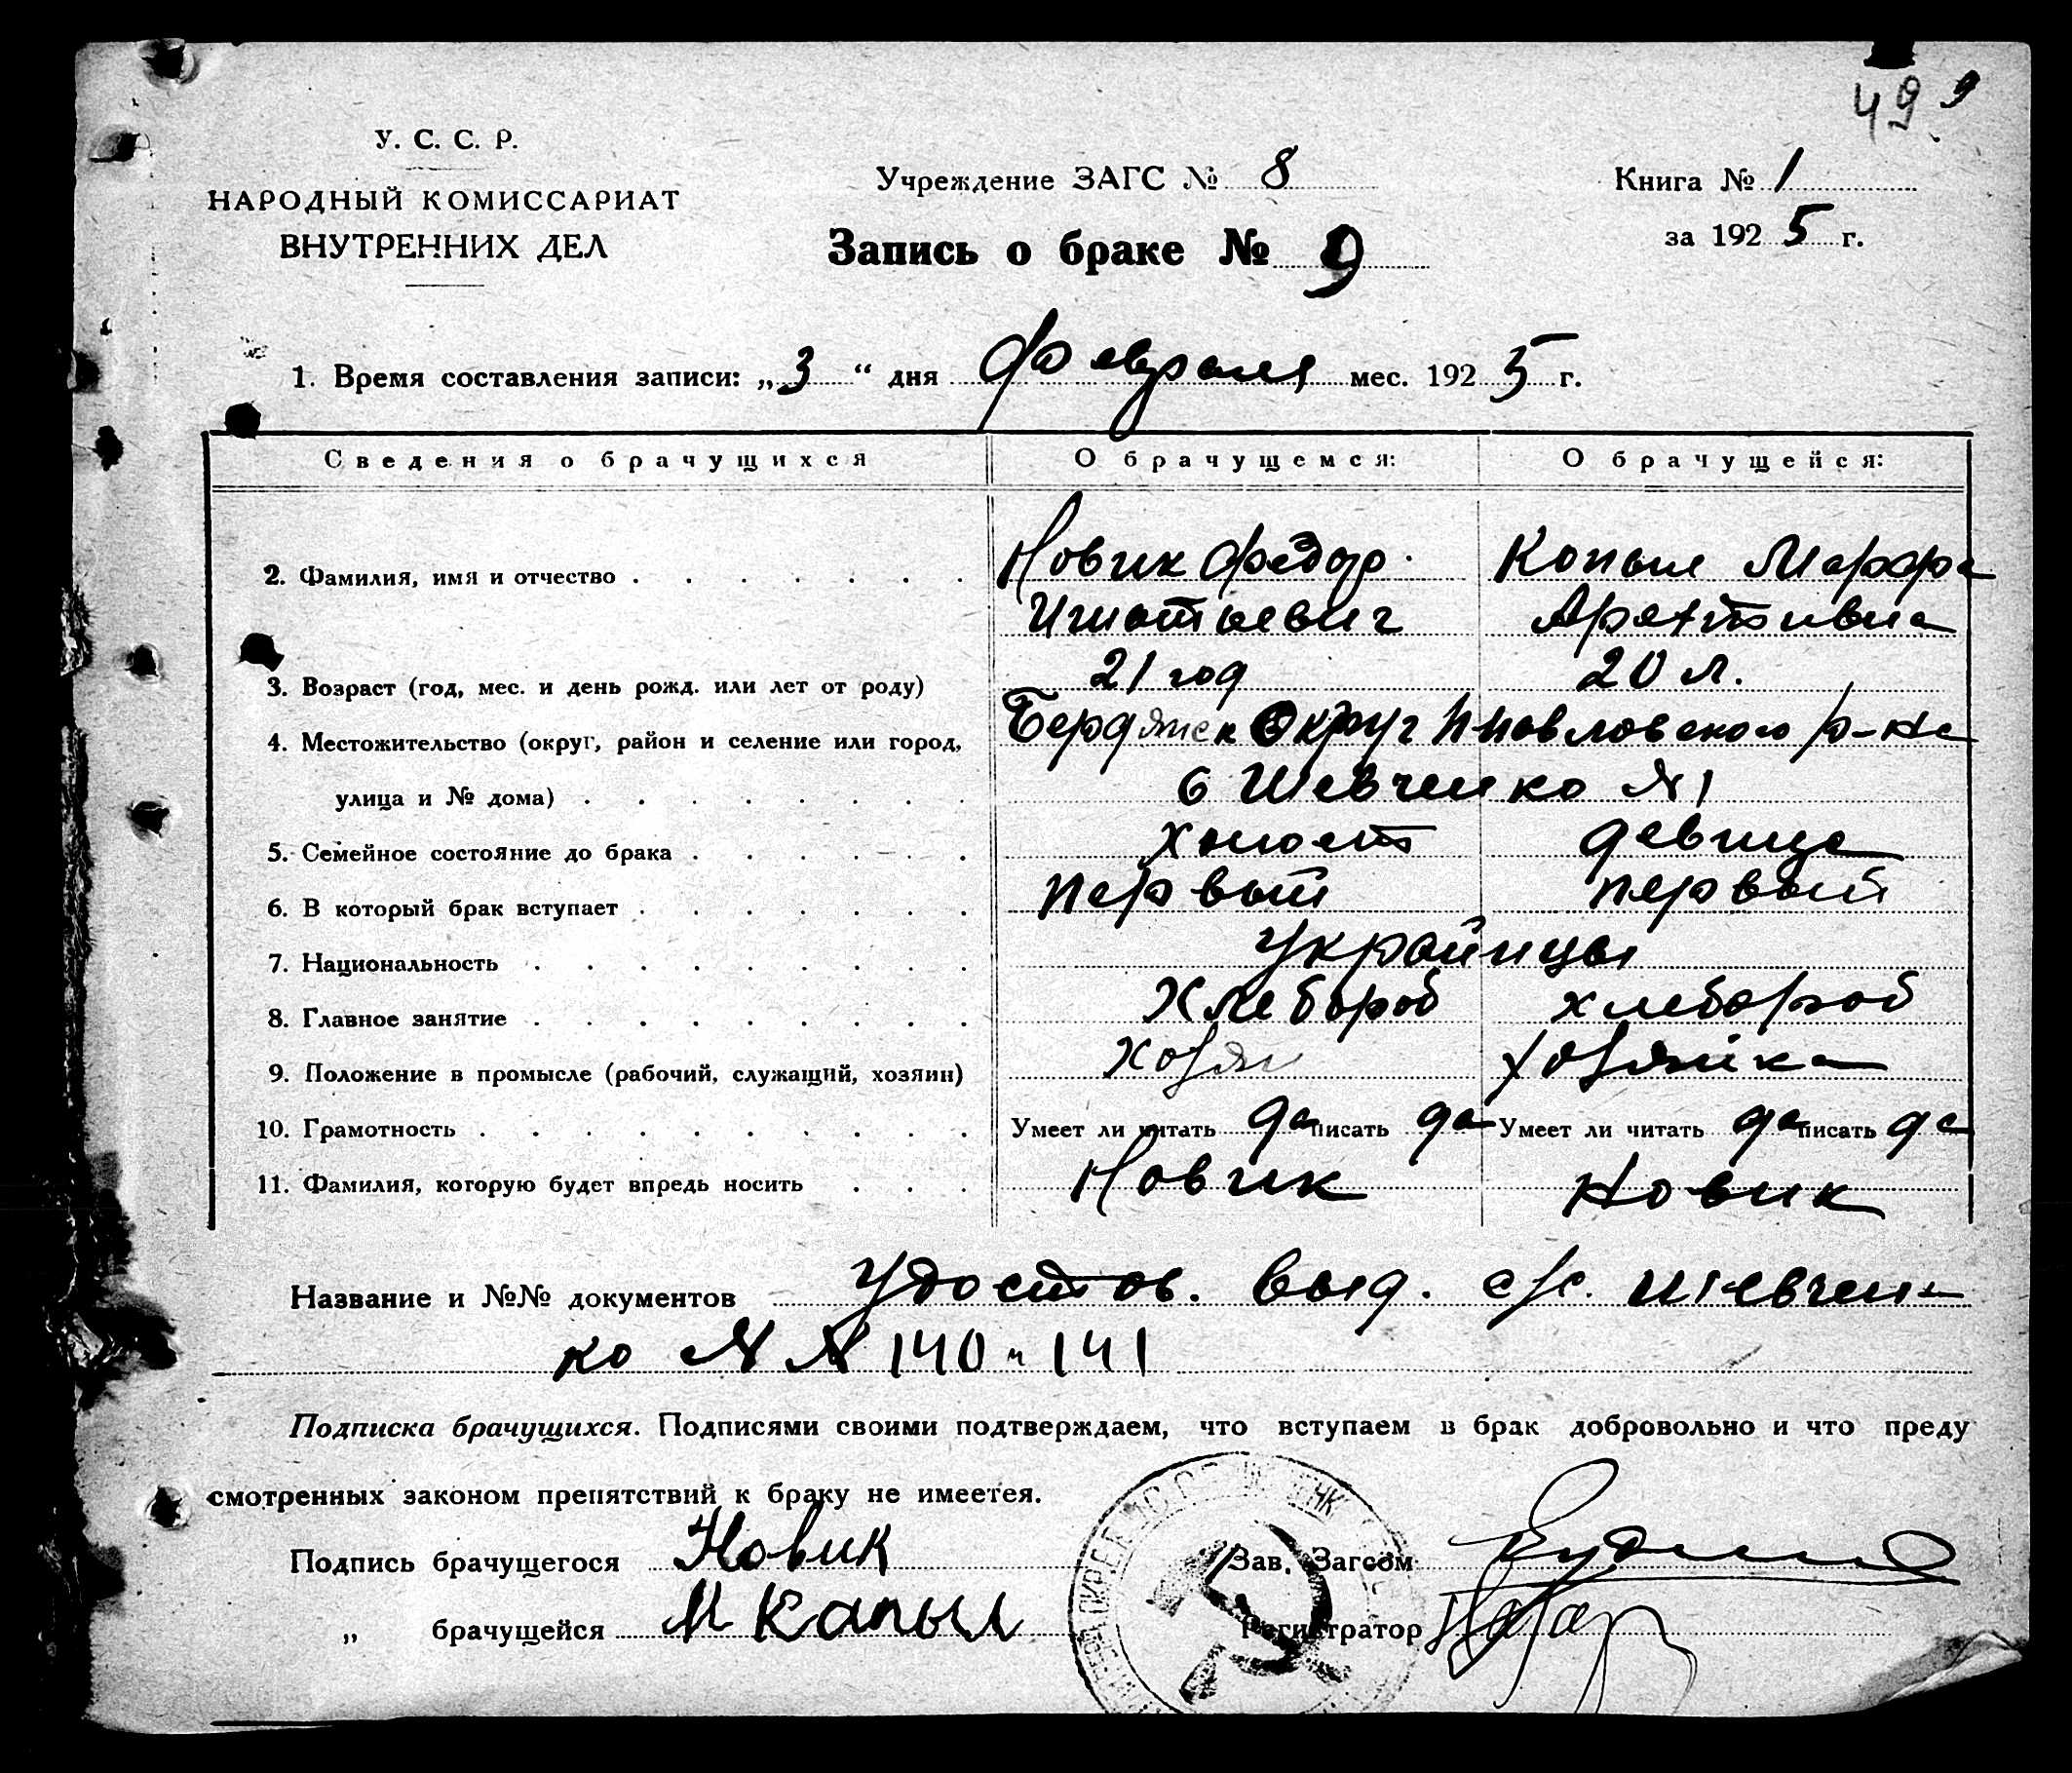 49 9
У. С. С. Р.
НАРОДНЫЙ КОМИССАРИАТ
ВНУТРЕННИХ ДЕЛ
Учреждение ЗАГС № 8
Книга № 1
Запись о браке № 9
за 1925 г.
1. Время составления записи: „3“ дня февраля мес. 1925 г.
Сведения о брачущихся О брачущемся: О брачущейся:
2. Фамилия, имя и отчество Новик Федор Копыл Марфа
Игнатьевич
3. Возраст (год, мес. и день рожд. или лет от роду) 21 год 20 л.
4. Местожительство (округ, район и селение или город, Бердянск Округ Павловского р-на
улица и № дома) с Шевченко № 1
5. Семейное состояние до брака холост девица
6. В который брак вступает первый первый
7. Национальность Украйнцы
8. Главное занятие Хлебороб хлебороб
9. Положение в промысле (рабочий, служащий, хозяин) Хозяи хозяйка
10. Грамотность Умеет ли читать да писать да Умеет ли читать да писать да
11. Фамилия, которую будет впредь носить Новик Новик
Название и №№ документов Удостов. выд. с/с. Шевчен-
ко № № 140 и 141
Подписка брачущихся. Подписями своими подтверждаем, что вступаем в брак добровольно и что преду
смотренных законом препятствий к браку не имеется.
Подпись брачущегося Новик Зав. Загсом
„ брачущейся М Капыл Регистратор